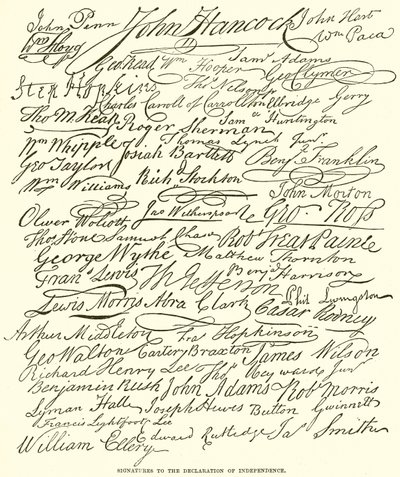 John Penn John Hancock John Hart
Wm Floyd Wm Paca
Geo Read Wm Hooper Saml Adams
Geo Clymer
Step Hopkins Thos Nelson jr
Charles Carroll of Carrollton Elbridge Gerry
Tho M:Kean Roger Sherman Saml Huntington
Wm Whipple Thomas Lynch Junr
Josiah Bartlett Benj Franklin
Geo Taylor
Wm Williams Richd Stockton John Morton
Oliver Wolcott Jno Witherspoon Geo Ross
Thos Stone Samuel Chase Robt Treat Paine
George Wythe Matthew Thornton
Frans Lewis Th Jefferson Benj Harrison
Lewis Morris Abra Clark Phil Livingston
Cæsar Rodney
Arthur Middleton Fras Hopkinson
Geo Walton Carter Braxton James Wilson
Richard Henry Lee Thos Heyward Junr
Benjamin Rush John Adams Robt Morris
Lyman Hall Joseph Hewes Button Gwinnett
Francis Lightfoot Lee
William Ellery Edward Rutledge Jas Smith
SIGNATURES TO THE DECLARATION OF INDEPENDENCE.